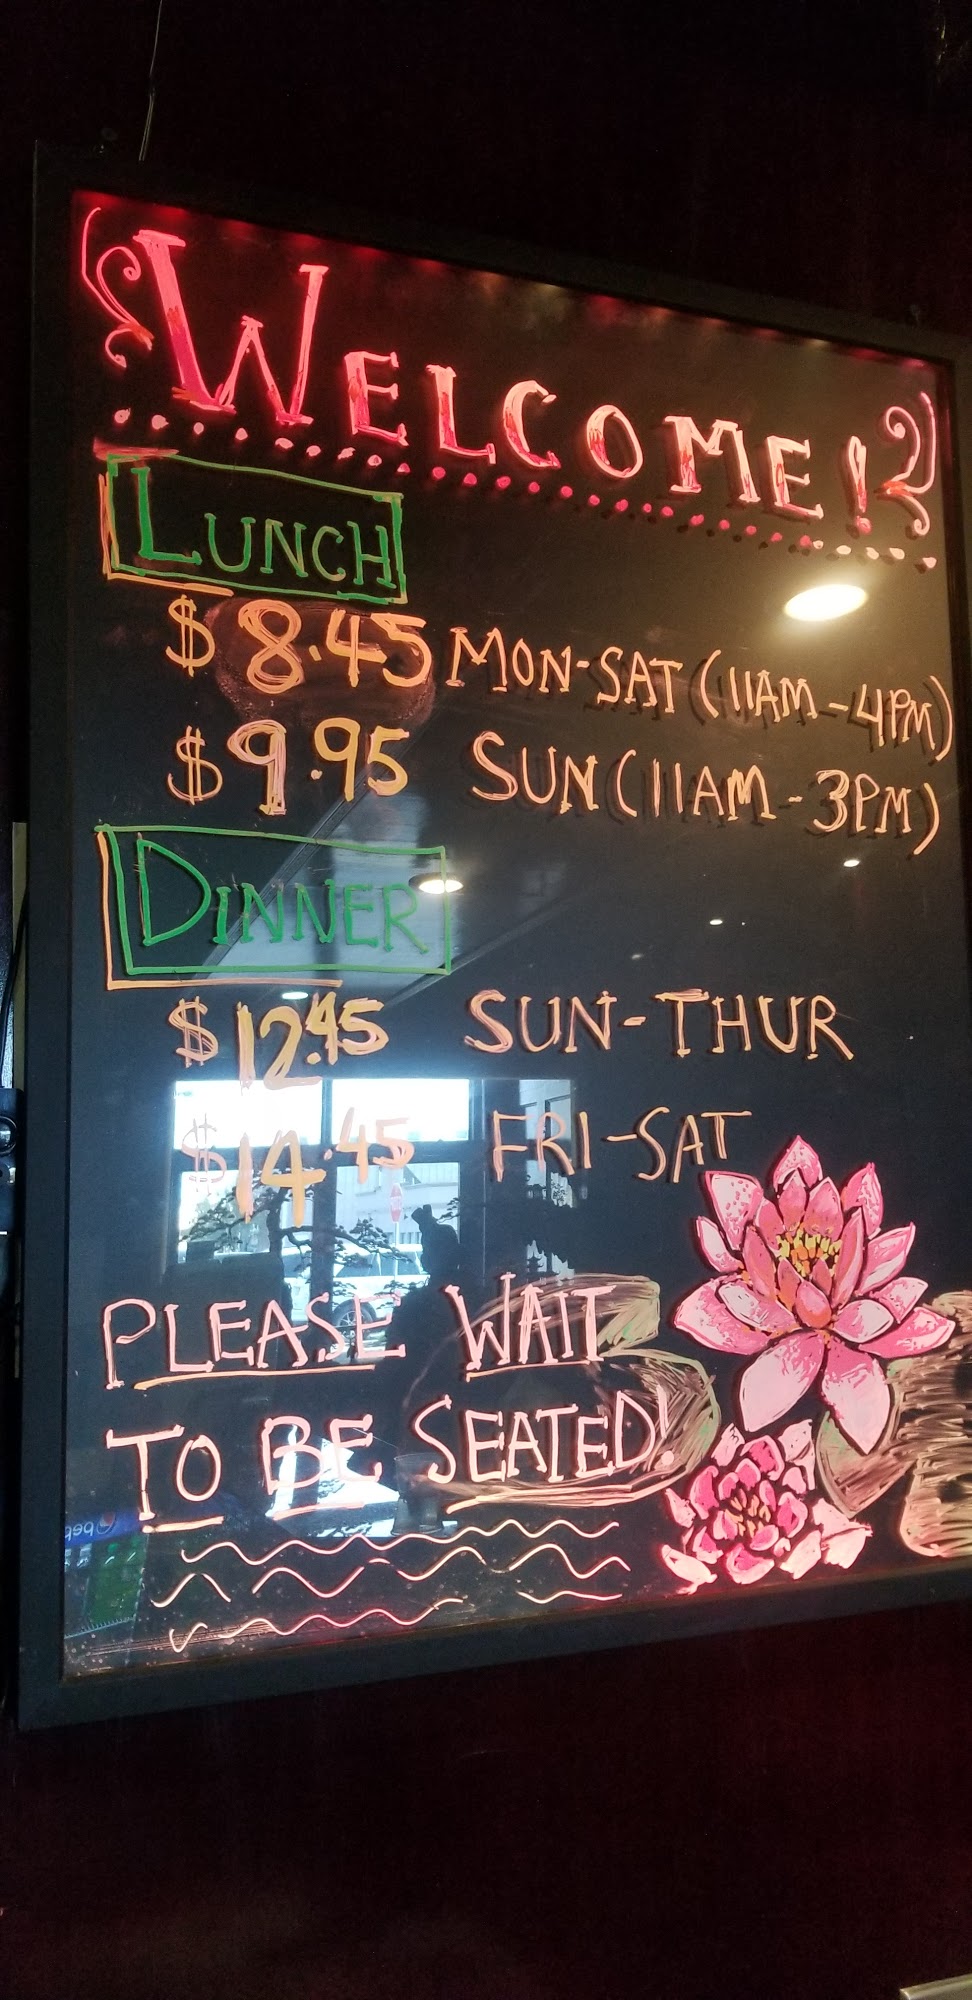 WELCOME!
LUNCH
$8.45 MON-SAT (11AM-4PM)
$9.95 SUN (11AM-3PM)
DINNER
$12.45 SUN-THUR
$14.45 FRI-SAT
PLEASE WAIT
TO BE SEATED!